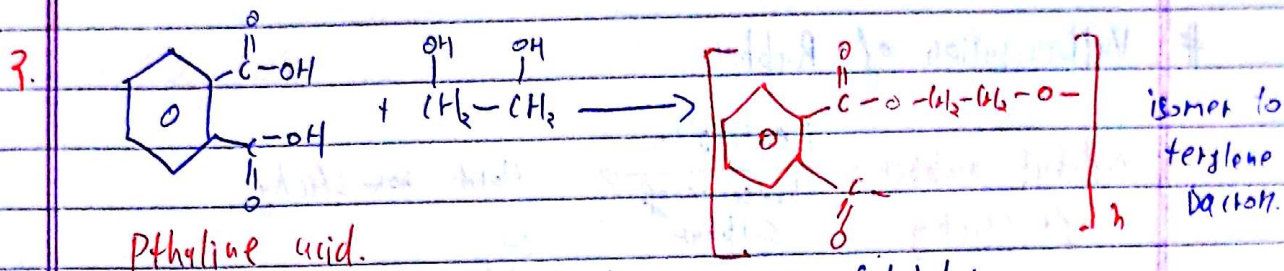 3.
O
C-OH
C-OH
O
+
OH OH
CH₂-CH₂
O
C-O-CH₂-CH₂-O-
C-
O
n
isomer to
terylene
Dacron.
Pthaline acid.